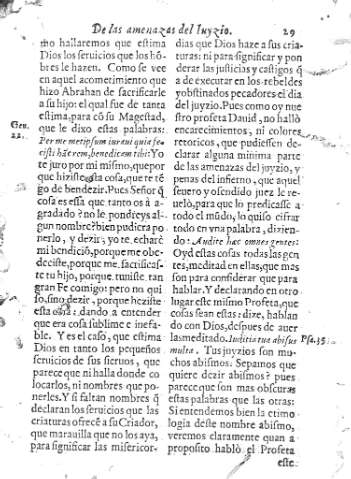 De las amenazas del Iuyzio. 29
mo hallaremos que estima
Dios los seruicios que los hō-
bres le hazen. Como se vee
en aquel acometimiento que
hizo Abrahan de sacrificarle
a su hijo: el qual fue de tanta
estima, para cō su Magestad,
que le dixo estas palabras:
Gen. 22.
Per me metipsum iuraui quia fe-
cisti hāc rem, benedicem tibi: Yo
te juro por mi mismo, que por
que hiziste esta cosa, que te tē
go de bendezir. Pues Señor q̄
cosa es essa que tanto os à a-
gradado? no le pondreys al-
gun nombre? bien pudiera po
nerlo, y dezir, yo te echarè
mi bendiciō, porque me obe-
deciste, porque me sacrificas-
te tu hijo, porque tuuiste tan
gran Fe comigo: pero no qui
so, sino dezir, porque heziste
esta cosa: dando a entender
que era cosa sublime e inefa-
ble. Y es el caso, que estima
Dios en tanto los pequeños
seruicios de sus sieruos, que
parece que ni halla donde co
locarlos, ni nombres que po-
nerles. Y si faltan nombres q̄
declaran los seruicios que las
criaturas ofrecē a su Criador,
que marauilla que no los aya,
para significar las misericor-
dias que Dios haze a sus cria-
turas: ni para significar y pon
derar las justicias y castigos q̄
a de executar en los rebeldes
y obstinados pecadores el dia
del juyzio. Pues como oy nue
stro profeta Dauid, no hallò
encarecimientos, ni colores
retoricos, que pudiessen de-
clarar alguna minima parte
de las amenazas del juyzio, y
penas del infierno, que aquel
seuero y ofendido juez le re-
uelò, para que lo predicasse a
todo el mūdo, lo quiso cifrar
todo en vna palabra, dizien-
do: Audite hæc omnes gentes:
Oyd estas cosas todas las gen
tes, meditad en ellas, que mas
son para considerar que para
hablar. Y declarando en otro
lugar este mismo Profeta, que
cosas sean estas: dize, hablan
do con Dios, despues de auer
las meditado. Iudicia tua abysus
multa. Tus juyzios son mu-
Psa. 35.
chos abismos. Sepamos que
quiere dezir abismos? pues
parece que son mas obscuras
estas palabras que las otras:
Si entendemos bien la etimo
logia deste nombre abismo,
veremos claramente quan a
proposito hablò el Profeta
este.